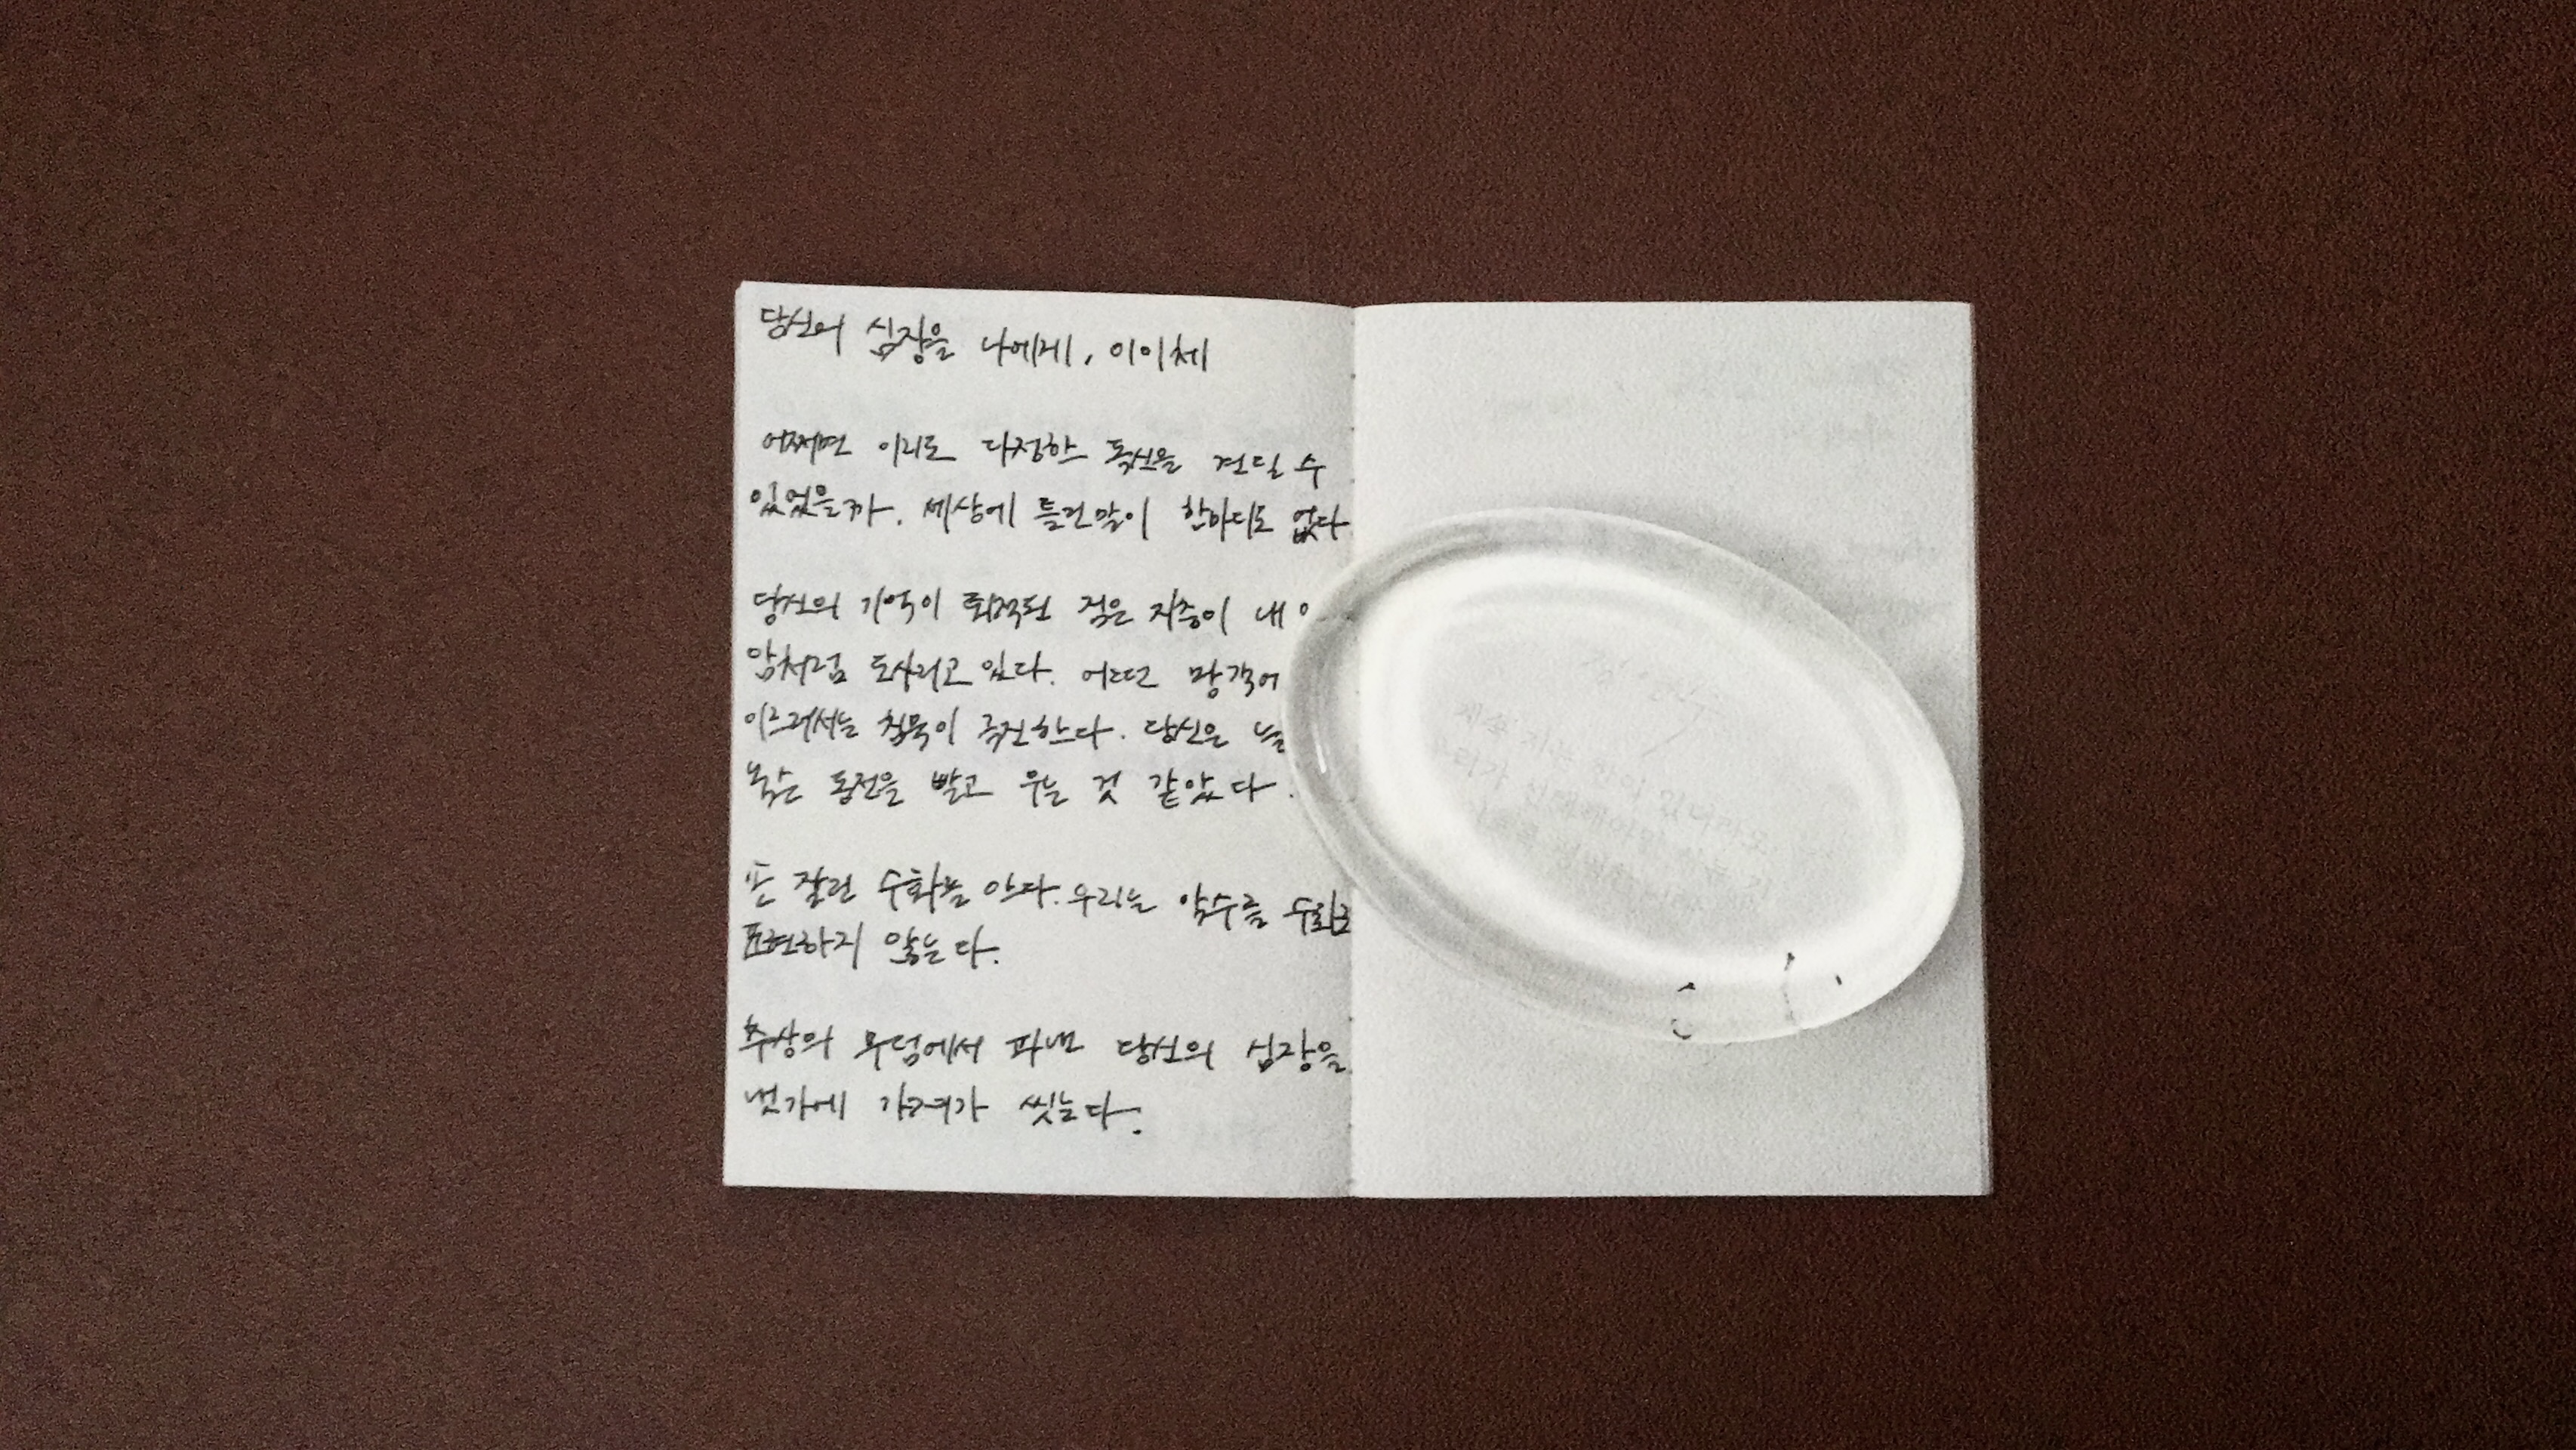 당신의 심장을 나에게, 이이체
어쩌면 이리도 다정한 독신을 견딜 수
있었을까. 세상에 틀린말이 한마디도 없다
당신의 기억이 퇴적된 검은 지층이 내
암처럼 도사리고 있다. 어떤 망각에
이르러서는 침묵이 극진하다. 당신은
녹슨 동전을 빨고 우는 것 같았다.
손 잘린 수화를 안다. 우리는 악수를 수화로
표현하지 않는다.
추상의 무덤에서 파낸 당신의 심장을
냇가에 가져가 씻는다.